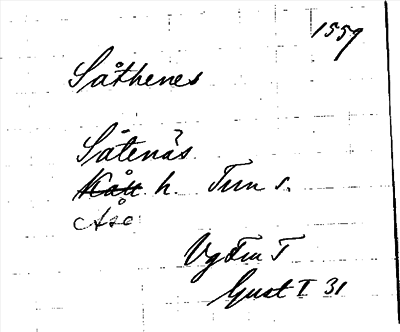 1559
Såthenes
Såtenäs ?
Kåll h. Tun s.
Åse
Vg Fru T
Gust I 31